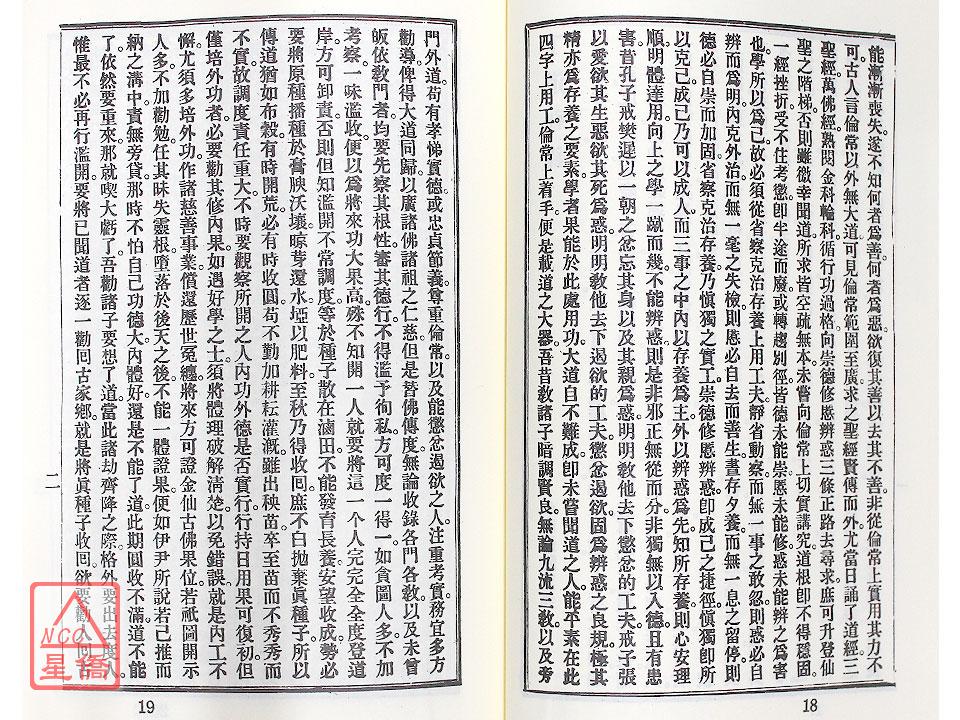 能漸漸喪失遂不知何者爲善何者爲惡欲復其善以去其不善非從倫常上實用其力不
可古人言倫常以外無大道可見倫常範圍至廣求之聖經賢傳而外尤當日誦了道經三
聖經萬佛經熟閱金科輪科循行功過格向崇德修慝辨惑三條正路去尋求庶可升登仙
聖之階梯否則雖徼幸聞道所求皆空疏無本未嘗向倫常上切實講究道根卽不得穩固
一經挫折受不住考懲卽半途而廢或轉趨別徑皆德未能崇慝未能修惑未能辨之爲害
也學所以爲己故必須從省察克治存養上用工夫靜省動察而無一事之敢忽則惑必自
辨而爲明內克外治而無一毫之失檢則慝必自去而善生晝存夕養而無一息之留停則
德必自崇而加固省察克治存養乃愼獨之實工崇德修慝辨惑卽成己之捷徑愼獨卽所
以克己成己乃可以成人而三事之中內以存養爲主外以辨惑爲先知所存養則心安理
順明體達用向上之學一蹴而幾不能辨惑則是非邪正無從而分非獨無以入德且有患
害昔孔子戒樊遲以一朝之忿忘其身以及其親爲惑明明敎他去下懲忿的工夫戒子張
以愛欲其生惡欲其死爲惑明明敎他去下遏欲的工夫懲忿遏欲固爲辨惑之良規極其
精亦爲存養之要素學者果能於此處用功大道自不難成卽未嘗聞道之人能平素在此
四字上用工倫常上着手便是載道之大器吾昔敎諸子暗調賢良無論九流三敎以及旁
18
門外道苟有孝悌實德或忠貞節義尊重倫常以及能懲忿遏欲之人注重考實務宜多方
勸導俾得大道同歸以廣諸佛諸祖之仁慈但是替佛傳度無論收錄各門各敎以及未曾
皈依敎門者均要先察其根性審其德行不得濫予徇私方可度一得一如貪圖人多不加
考察一味濫收便以爲將來功大果高殊不知開一人就要將這一个人完完全全度登道
岸方可卸責否則但知濫開不常調度等於種子散在滷田不能發育長養安望收成勢必
要將原種播種於膏腴沃壤晾芽還水埡以肥料至秋乃得收囘庶不白抛棄眞種子所以
傳道猶如布穀有時開荒必有時收圓苟不勤加耕耘灌漑雖出秧苗卒至苗而不秀秀而
不實故調度責任重大不時要觀察所開之人內功外德是否實行行持日用果可復初但
僅培外功者必要勸其修內果如遇好學之士須將體理破解淸楚以免錯誤就是內工不
懈尤須多培外功作諸慈善事業償還歷世冤纏將來方可證金仙古佛果位若祇圖開示
人多不加勸勉任其昧失靈根墮落於後天之後不能一體證果便如伊尹所說若己推而
納之溝中責無旁貸那時不怕自己功德大內體好還是不能了道此期圓收不滿道不能
了依然要重來那就喫大虧了吾勸諸子要想了道當此諸劫齊降之際格外要出去度人
惟最不必再行濫開要將已聞道者逐一勸囘古家鄉就是將眞種子收囘欲要勸人囘古
二
19
NCC
星僑